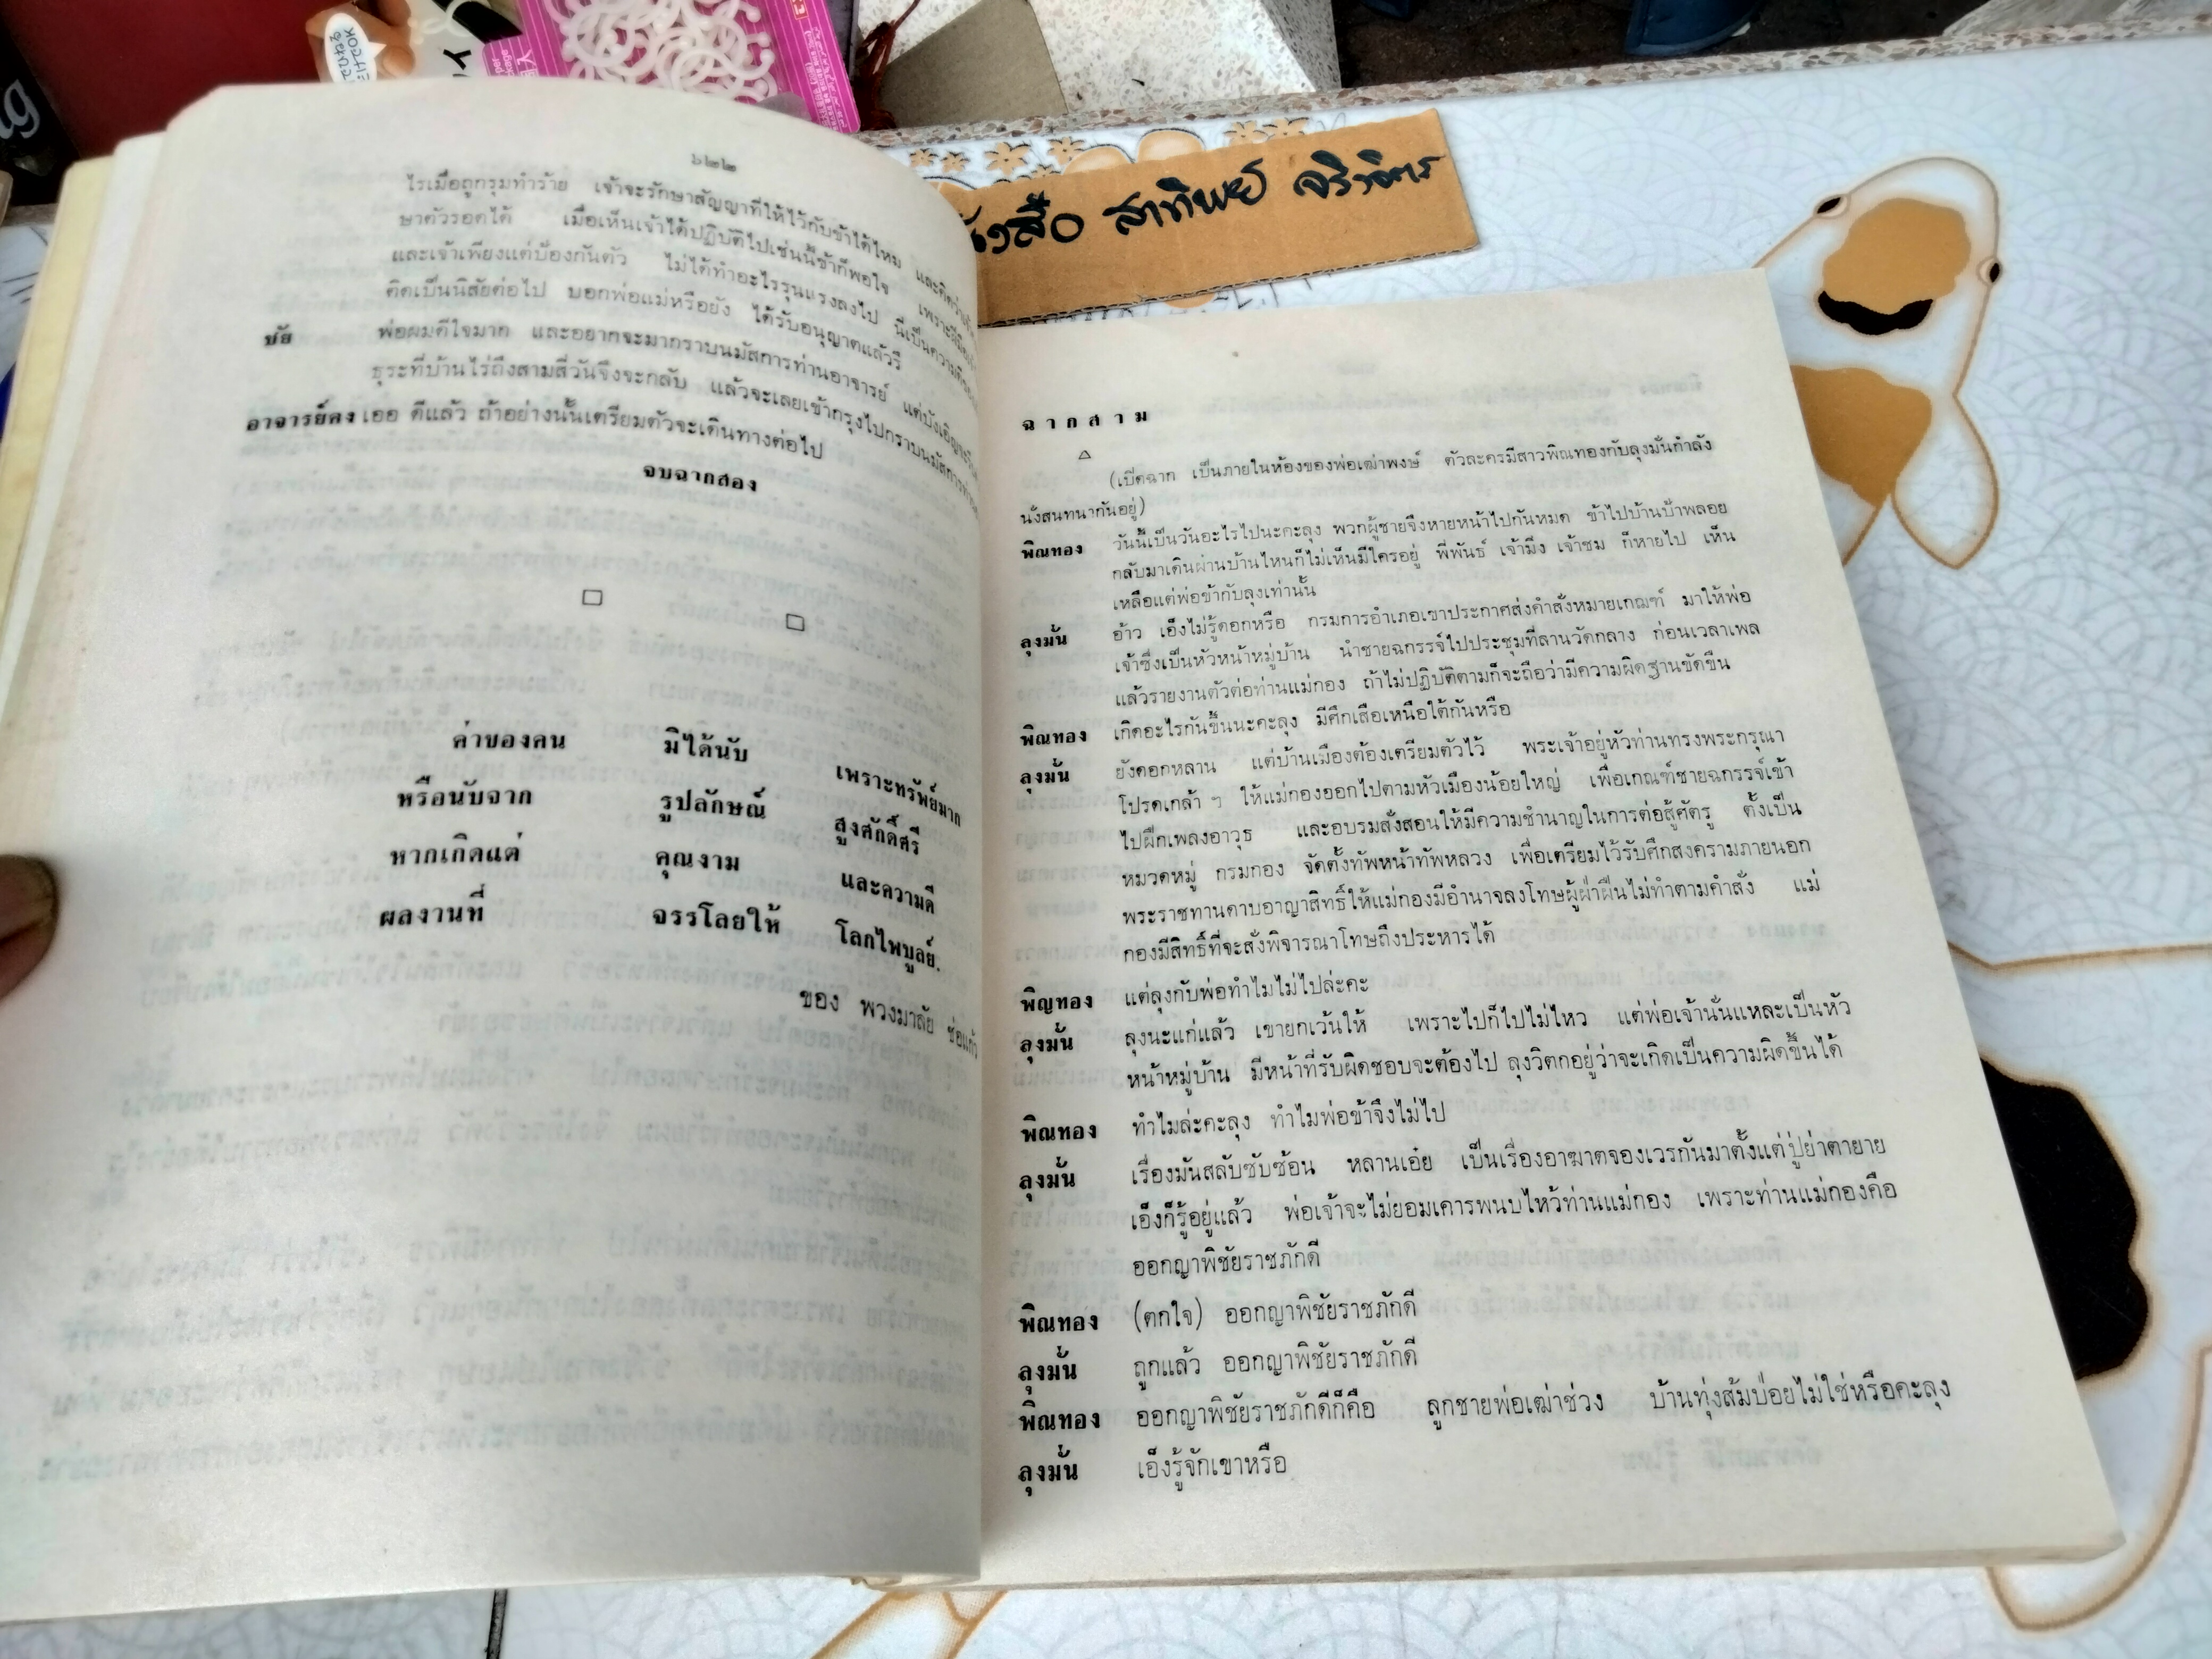 ๖๒๒
ไรเมื่อถูกรุมทำร้าย เจ้าจะรักษาสัญญาที่ให้ไว้กับข้าได้ไหม และคิดว่าเจ้า
ษาตัวรอดได้ เมื่อเห็นเจ้าได้ปฏิบัติไปเช่นนี้ข้าก็พอใจ
และเจ้าเพียงแต่ป้องกันตัว ไม่ได้ทำอะไรรุนแรงลงไป นี่เป็นความดี
ติดเป็นนิสัยต่อไป บอกพ่อแม่หรือยัง ได้รับอนุญาตแล้วรึ
ชัย พ่อผมดีใจมาก และอยากจะมากราบนมัสการท่านอาจารย์ แต่บังเอิญ
ธุระที่บ้านไร่ถึงสามสี่วันจึงจะกลับ แล้วจะเลยเข้ากรุงไปกราบนมัสการ
อาจารย์คง เออ ดีแล้ว ถ้าอย่างนั้นเตรียมตัวจะเดินทางต่อไป
จบฉากสอง
ค่าของคน มิได้นับ เพราะทรัพย์มาก
หรือนับจาก รูปลักษณ์ สูงศักดิ์ศรี
หากเกิดแต่ คุณงาม และความดี
ผลงานที่ จรรโลยให้ โลกไพบูลย์.
ของ พวงมาลัย ช่อแก้ว
ฉากสาม
(เปิดฉาก เป็นภายในห้องของพ่อเฒ่าพงษ์ ตัวละครมีสาวพิณทองกับลุงมั่นกำลัง
นั่งสนทนากันอยู่)
พิณทอง วันนี้เป็นวันอะไรไปนะคะลุง พวกผู้ชายจึงหายหน้าไปกันหมด ข้าไปบ้านป้าพลอย
กลับมาเดินผ่านบ้านไหนก็ไม่เห็นมีใครอยู่ พี่พันธ์ เจ้ามิ่ง เจ้าชม ก็หายไป เห็น
เหลือแต่พ่อข้ากับลุงเท่านั้น
ลุงมั่น อ้าว เอ็งไม่รู้ดอกหรือ กรมการอำเภอเขาประกาศส่งคำสั่งหมายเกณฑ์ มาให้พ่อ
เจ้าซึ่งเป็นหัวหน้าหมู่บ้าน นำชายฉกรรจ์ไปประชุมที่ลานวัดกลาง ก่อนเวลาเพล
แล้วรายงานตัวต่อท่านแม่กอง ถ้าไม่ปฏิบัติตามก็จะถือว่ามีความผิดฐานขัดขืน
พิณทอง เกิดอะไรกันขึ้นนะคะลุง มีศึกเสือเหนือใต้กันหรือ
ลุงมั่น ยังดอกหลาน แต่บ้านเมืองต้องเตรียมตัวไว้ พระเจ้าอยู่หัวท่านทรงพระกรุณา
โปรดเกล้า ฯ ให้แม่กองออกไปตามหัวเมืองน้อยใหญ่ เพื่อเกณฑ์ชายฉกรรจ์เข้า
ไปฝึกเพลงอาวุธ และอบรมสั่งสอนให้มีความชำนาญในการต่อสู้ศัตรู ตั้งเป็น
หมวดหมู่ กรมกอง จัดตั้งทัพหน้าทัพหลวง เพื่อเตรียมไว้รับศึกสงครามภายนอก
พระราชทานดาบอาญาสิทธิ์ให้แม่กองมีอำนาจลงโทษผู้ฝ่าฝืนไม่ทำตามคำสั่ง แม่
กองมีสิทธิ์ที่จะสั่งพิจารณาโทษถึงประหารได้
พิญทอง แต่ลุงกับพ่อทำไมไม่ไปล่ะคะ
ลุงมั่น ลุงนะแก่แล้ว เขายกเว้นให้ เพราะไปก็ไปไม่ไหว แต่พ่อเจ้านั่นแหละเป็นหัว
หน้าหมู่บ้าน มีหน้าที่รับผิดชอบจะต้องไป ลุงวิตกอยู่ว่าจะเกิดเป็นความผิดขึ้นได้
พิณทอง ทำไมล่ะคะลุง ทำไมพ่อข้าจึงไม่ไป
ลุงมั่น เรื่องมันสลับซับซ้อน หลานเอ๋ย เป็นเรื่องอาฆาตจองเวรกันมาตั้งแต่ปู่ย่าตายาย
เอ็งก็รู้อยู่แล้ว พ่อเจ้าจะไม่ยอมเคารพนบไหว้ท่านแม่กอง เพราะท่านแม่กองคือ
ออกญาพิชัยราชภักดี
พิณทอง (ตกใจ) ออกญาพิชัยราชภักดี
ลุงมั่น ถูกแล้ว ออกญาพิชัยราชภักดี
พิณทอง ออกญาพิชัยราชภักดีก็คือ ลูกชายพ่อเฒ่าช่วง บ้านทุ่งส้มป่อยไม่ใช่หรือคะลุง
ลุงมั่น เอ็งรู้จักเขาหรือ